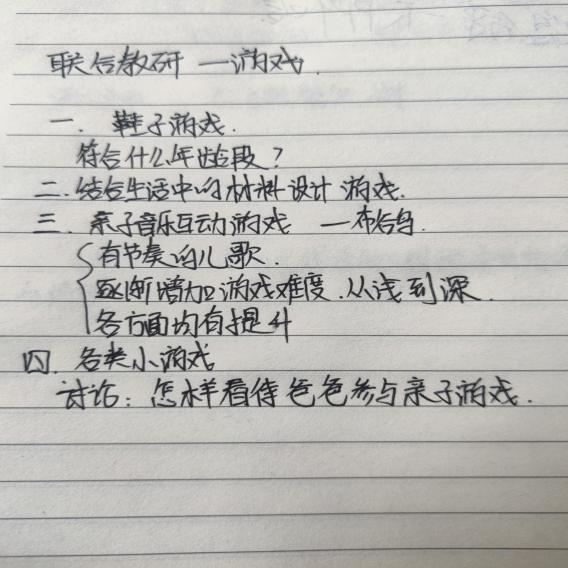 联合教研 —游戏.
一. 鞋子游戏.
符合什么年龄段?
二.结合生活中的材料设计 游戏.
三. 亲子音乐互动游戏 —布谷鸟.
有节奏的儿歌.
逐渐增加游戏难度.从浅到深.
各方面均有提升
四. 各类小游戏
讨论:怎样看待爸爸参与亲子游戏.